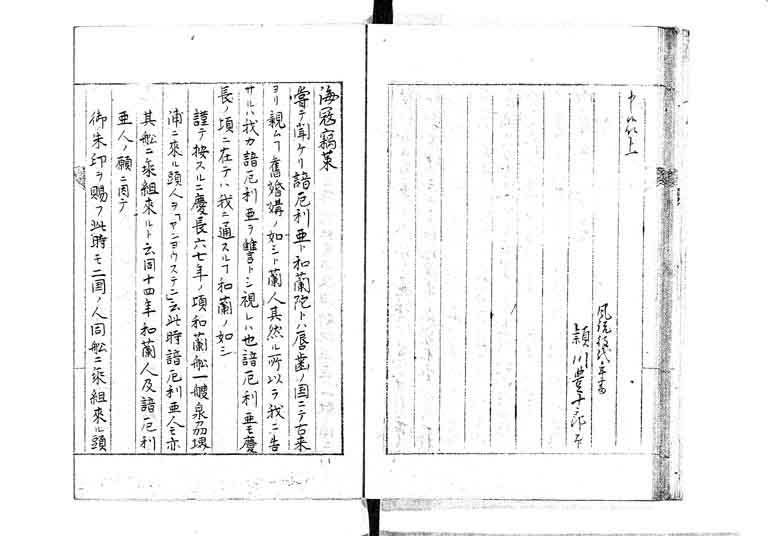 以上
頴川豊十郎
海寇竊策
嘗テ聞ケリ諳厄利亜ト和蘭陀トハ唇歯ノ国ニテ古来
ヨリ親ムヿ舊婚媾ノ如シト蘭人其然ル所以ヲ我ニ告
サルハ我カ諳厄利亜ヲ讐トシ視レハ也諳厄利亜モ慶
長ノ頃ニ在テハ我ニ通スルヿ和蘭ノ如シ
謹テ按スルニ慶長六七年ノ頃和蘭舩一艘泉刕堺ノ
浦ニ來ル頭人ヲ「ヤンヨウステン」ト云此時諳厄利亜人モ亦
其舩ニ乗組來ルト云同十四年和蘭人及諳厄利
亜人ノ願ニ因テ
御朱印ヲ賜フ此時モ二国ノ人同舩ニ乗組來ル頭